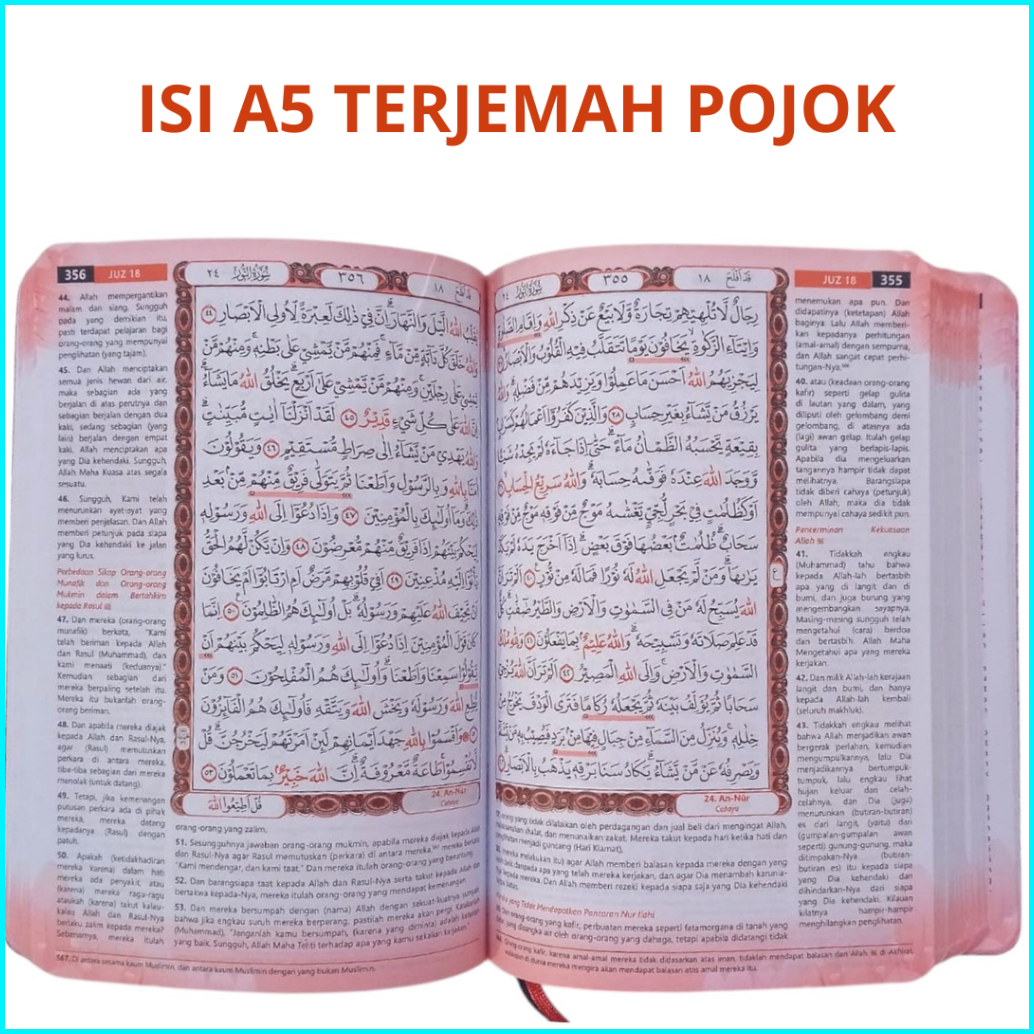 ISI A5 TERJEMAH POJOK
356 JUZ 18
44. Allah mempergantikan
malam dan siang. Sungguh
pada yang demikian itu,
pasti terdapat pelajaran bagi
orang-orang yang mempunyai
penglihatan (yang tajam).
45. Dan Allah menciptakan
semua jenis hewan dari air,
maka sebagian ada yang
berjalan di atas perutnya dan
sebagian berjalan dengan dua
kaki, sedang sebagian (yang
lain) berjalan dengan empat
kaki. Allah menciptakan apa
yang Dia kehendaki. Sungguh,
Allah Maha Kuasa atas segala
sesuatu.
46. Sungguh, Kami telah
menurunkan ayat-ayat yang
memberi penjelasan. Dan Allah
memberi petunjuk pada siapa
yang Dia kehendaki ke jalan
yang lurus.
Perbedaan Sikap Orang-orang
Munafik dan Orang-orang
Mukmin dalam Bertahkim
kepada Rasul ﷺ
47. Dan mereka (orang-orang
munafik) berkata, "Kami
telah beriman kepada Allah
dan Rasul (Muhammad), dan
kami menaati (keduanya)."
Kemudian sebagian dari
mereka berpaling setelah itu.
Mereka itu bukanlah orang-
orang beriman.
48. Dan apabila mereka diajak
kepada Allah dan Rasul-Nya,
agar (Rasul) memutuskan
perkara di antara mereka,
tiba-tiba sebagian dari mereka
menolak (untuk datang).
49. Tetapi, jika kemenangan
putusan perkara ada di pihak
mereka, mereka datang
kepadanya (Rasul) dengan
patuh.
50. Apakah (ketidakhadiran
mereka karena) dalam hati
mereka ada penyakit, atau
(karena) mereka ragu-ragu
ataukah (karena) takut kalau-
kalau Allah dan Rasul-Nya
berlaku zalim kepada mereka?
Sebenarnya, mereka itulah
٢٤ سورة النور ٣٥٦ قد أفلح ١٨
يُقَلِّبُ اللّٰهُ الَّيْلَ وَالنَّهَارَ اِنَّ فِيْ ذٰلِكَ لَعِبْرَةً لِّاُولِى الْاَبْصَارِ ٤٤
وَاللّٰهُ خَلَقَ كُلَّ دَاۤبَّةٍ مِّنْ مَّاۤءٍ فَمِنْهُمْ مَّنْ يَّمْشِيْ عَلٰى بَطْنِهٖ وَمِنْهُمْ مَّنْ
يَّمْشِيْ عَلٰى رِجْلَيْنِ وَمِنْهُمْ مَّنْ يَّمْشِيْ عَلٰٓى اَرْبَعٍ يَخْلُقُ اللّٰهُ مَا يَشَاۤءُ
اِنَّ اللّٰهَ عَلٰى كُلِّ شَيْءٍ قَدِيْرٌ ٤٥ لَقَدْ اَنْزَلْنَآ اٰيٰتٍ مُّبَيِّنٰتٍ
وَاللّٰهُ يَهْدِيْ مَنْ يَّشَاۤءُ اِلٰى صِرَاطٍ مُّسْتَقِيْمٍ ٤٦ وَيَقُوْلُوْنَ
اٰمَنَّا بِاللّٰهِ وَبِالرَّسُوْلِ وَاَطَعْنَا ثُمَّ يَتَوَلّٰى فَرِيْقٌ مِّنْهُمْ مِّنْۢ بَعْدِ
ذٰلِكَ وَمَآ اُولٰۤىِٕكَ بِالْمُؤْمِنِيْنَ ٤٧ وَاِذَا دُعُوْٓا اِلَى اللّٰهِ وَرَسُوْلِهٖ
لِيَحْكُمَ بَيْنَهُمْ اِذَا فَرِيْقٌ مِّنْهُمْ مُّعْرِضُوْنَ ٤٨ وَاِنْ يَّكُنْ لَّهُمُ الْحَقُّ
يَأْتُوْٓا اِلَيْهِ مُذْعِنِيْنَ ٤٩ اَفِيْ قُلُوْبِهِمْ مَّرَضٌ اَمِ ارْتَابُوْٓا اَمْ يَخَافُوْنَ
اَنْ يَّحِيْفَ اللّٰهُ عَلَيْهِمْ وَرَسُوْلُهٗ بَلْ اُولٰۤىِٕكَ هُمُ الظّٰلِمُوْنَ ٥٠ اِنَّمَا
كَانَ قَوْلَ الْمُؤْمِنِيْنَ اِذَا دُعُوْٓا اِلَى اللّٰهِ وَرَسُوْلِهٖ لِيَحْكُمَ بَيْنَهُمْ اَنْ
يَّقُوْلُوْا سَمِعْنَا وَاَطَعْنَا وَاُولٰۤىِٕكَ هُمُ الْمُفْلِحُوْنَ ٥١ وَمَنْ
يُّطِعِ اللّٰهَ وَرَسُوْلَهٗ وَيَخْشَ اللّٰهَ وَيَتَّقْهِ فَاُولٰۤىِٕكَ هُمُ الْفَاۤىِٕزُوْنَ
٥٢ وَاَقْسَمُوْا بِاللّٰهِ جَهْدَ اَيْمَانِهِمْ لَىِٕنْ اَمَرْتَهُمْ لَيَخْرُجُنَّ قُلْ
لَّا تُقْسِمُوْا طَاعَةٌ مَّعْرُوْفَةٌ اِنَّ اللّٰهَ خَبِيْرٌۢ بِمَا تَعْمَلُوْنَ ٥٣
قُلْ اَطِيْعُوا اللّٰهَ
24. An-Nūr
Cahaya
orang-orang yang zalim.
51. Sesungguhnya jawaban orang-orang mukmin, apabila mereka diajak kepada Allah
dan Rasul-Nya agar Rasul memutuskan (perkara) di antara mereka, mereka berkata,
"Kami mendengar, dan kami taat." Dan mereka itulah orang-orang yang beruntung.
52. Dan barangsiapa taat kepada Allah dan Rasul-Nya serta takut kepada Allah dan
bertakwa kepada-Nya, mereka itulah orang-orang yang mendapat kemenangan.
53. Dan mereka bersumpah dengan (nama) Allah dengan sekuat-kuatnya sumpah
bahwa jika engkau suruh mereka berperang, pastilah mereka akan pergi. Katakanlah
(Muhammad), "Janganlah kamu bersumpah, (karena yang diminta) adalah ketaatan
yang baik. Sungguh, Allah Maha Teliti terhadap apa yang kamu kerjakan."
567. Di antara sesama kaum Muslimin, dan antara kaum Muslimin dengan yang bukan Muslimin.
سورة النور ٢٤ ٣٥٥ قد أفلح ١٨
رِجَالٌ لَّا تُلْهِيْهِمْ تِجَارَةٌ وَّلَا بَيْعٌ عَنْ ذِكْرِ اللّٰهِ وَاِقَامِ الصَّلٰوةِ
وَاِيْتَاۤءِ الزَّكٰوةِ يَخَافُوْنَ يَوْمًا تَتَقَلَّبُ فِيْهِ الْقُلُوْبُ وَالْاَبْصَارُ
لِيَجْزِيَهُمُ اللّٰهُ اَحْسَنَ مَا عَمِلُوْا وَيَزِيْدَهُمْ مِّنْ فَضْلِهٖ وَاللّٰهُ
يَرْزُقُ مَنْ يَّشَاۤءُ بِغَيْرِ حِسَابٍ ٣٨ وَالَّذِيْنَ كَفَرُوْٓا اَعْمَالُهُمْ كَسَرَابٍ
بِقِيْعَةٍ يَّحْسَبُهُ الظَّمْاٰنُ مَاۤءً حَتّٰٓى اِذَا جَاۤءَهٗ لَمْ يَجِدْهُ شَيْـًٔا
وَّوَجَدَ اللّٰهَ عِنْدَهٗ فَوَفّٰىهُ حِسَابَهٗ وَاللّٰهُ سَرِيْعُ الْحِسَابِ
اَوْ كَظُلُمٰتٍ فِيْ بَحْرٍ لُّجِّيٍّ يَّغْشٰىهُ مَوْجٌ مِّنْ فَوْقِهٖ مَوْجٌ مِّنْ فَوْقِهٖ
سَحَابٌ ظُلُمٰتٌۢ بَعْضُهَا فَوْقَ بَعْضٍ اِذَآ اَخْرَجَ يَدَهٗ لَمْ يَكَدْ
يَرٰىهَا وَمَنْ لَّمْ يَجْعَلِ اللّٰهُ لَهٗ نُوْرًا فَمَا لَهٗ مِنْ نُّوْرٍ ٤٠ اَلَمْ تَرَ اَنَّ
اللّٰهَ يُسَبِّحُ لَهٗ مَنْ فِى السَّمٰوٰتِ وَالْاَرْضِ وَالطَّيْرُ صٰۤفّٰتٍ كُلٌّ
قَدْ عَلِمَ صَلَاتَهٗ وَتَسْبِيْحَهٗ وَاللّٰهُ عَلِيْمٌۢ بِمَا يَفْعَلُوْنَ ٤١ وَلِلّٰهِ مُلْكُ
السَّمٰوٰتِ وَالْاَرْضِ وَاِلَى اللّٰهِ الْمَصِيْرُ ٤٢ اَلَمْ تَرَ اَنَّ اللّٰهَ يُزْجِيْ
سَحَابًا ثُمَّ يُؤَلِّفُ بَيْنَهٗ ثُمَّ يَجْعَلُهٗ رُكَامًا فَتَرَى الْوَدْقَ يَخْرُجُ مِنْ
خِلٰلِهٖ وَيُنَزِّلُ مِنَ السَّمَاۤءِ مِنْ جِبَالٍ فِيْهَا مِنْۢ بَرَدٍ فَيُصِيْبُ بِهٖ مَنْ يَّشَاۤءُ
وَيَصْرِفُهٗ عَنْ مَّنْ يَّشَاۤءُ يَكَادُ سَنَا بَرْقِهٖ يَذْهَبُ بِالْاَبْصَارِ
24. An-Nūr
Cahaya
orang yang tidak dilalaikan oleh perdagangan dan jual beli dari mengingat Allah,
melaksanakan shalat, dan menunaikan zakat. Mereka takut kepada hari ketika hati dan
penglihatan menjadi guncang (Hari Kiamat),
(mereka melakukan itu) agar Allah memberi balasan kepada mereka dengan yang
lebih baik daripada apa yang telah mereka kerjakan, dan agar Dia menambah karunia-
Nya kepada mereka. Dan Allah memberi rezeki kepada siapa saja yang Dia kehendaki
tanpa batas.
yang Tidak Mendapatkan Pancaran Nur Ilahi
39. Dan orang-orang yang kafir, perbuatan mereka seperti fatamorgana di tanah yang
datar, yang disangka air oleh orang-orang yang dahaga, tetapi apabila didatangi tidak
Orang-orang kafir, karena amal-amal mereka tidak didasarkan atas iman, tidaklah mendapat balasan dari Allah ﷻ di Akhirat,
walaupun di dunia mereka mengira akan mendapat balasan atas amal mereka itu.
JUZ 18 355
menemukan apa pun. Dan
didapatinya (ketetapan) Allah
baginya. Lalu Allah memberi-
kan kepadanya perhitungan
(amal-amal) dengan sempurna,
dan Allah sangat cepat perhi-
tungan-Nya.
40. atau (keadaan orang-orang
kafir) seperti gelap gulita
di lautan yang dalam, yang
diliputi oleh gelombang demi
gelombang, di atasnya ada
(lagi) awan gelap. Itulah gelap
gulita yang berlapis-lapis.
Apabila dia mengeluarkan
tangannya hampir tidak dapat
melihatnya. Barangsiapa
tidak diberi cahaya (petunjuk)
oleh Allah, maka dia tidak
mempunyai cahaya sedikit pun.
Pencerminan Kekuasaan
Allah ﷻ
41. Tidakkah engkau
(Muhammad) tahu bahwa
kepada Allah-lah bertasbih
apa yang di langit dan di
bumi, dan juga burung yang
mengembangkan sayapnya.
Masing-masing sungguh telah
mengetahui (cara) berdoa
dan bertasbih. Allah Maha
Mengetahui apa yang mereka
kerjakan.
42. Dan milik Allah-lah kerajaan
langit dan bumi, dan hanya
kepada Allah-lah kembali
(seluruh makhluk).
43. Tidakkah engkau melihat
bahwa Allah menjadikan awan
bergerak perlahan, kemudian
mengumpulkannya, lalu Dia
menjadikannya bertumpuk-
tumpuk, lalu engkau lihat
hujan keluar dari celah-
celahnya, dan Dia (juga)
menurunkan (butiran-butiran)
es dari langit, (yaitu) dari
(gumpalan-gumpalan awan
seperti) gunung-gunung, maka
ditimpakan-Nya (butiran-
butiran es) itu kepada siapa
yang Dia kehendaki dan
dihindarkan-Nya dari siapa
yang Dia kehendaki. Kilauan
kilatnya hampir-hampir
menghilangkan penglihatan.